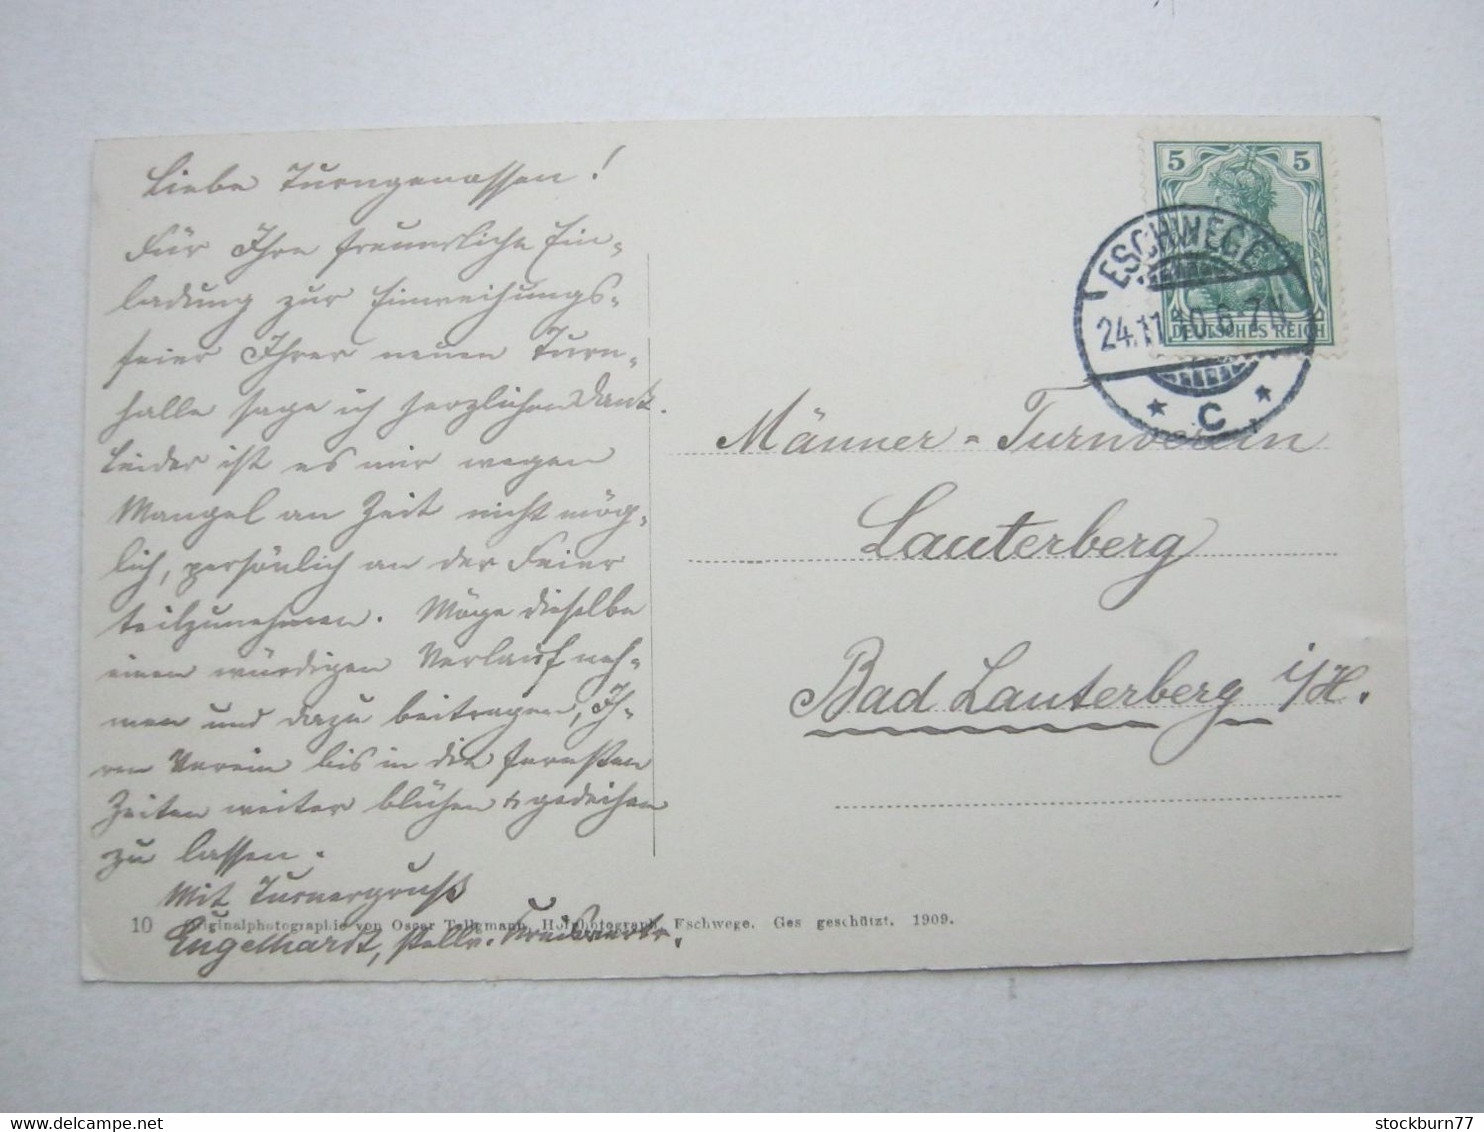 Liebe Turngenossen!
Für Ihre freundliche Ein-
ladung zur Einweihungs-
feier Ihrer neuen Turn-
halle sage ich herzlichen Dank.
Leider ist es mir wegen
Mangel an Zeit nicht mög-
lich, persönlich an der Feier
teilzunehmen. Möge dieselbe
einen würdigen Verlauf neh-
men und dazu beitragen, Ih-
ren Verein bis in die fernsten
Zeiten weiter blühen & gedeihen
zu lassen.
Mit Turnergruß
Engelhardt, stellv. Kreisvertr.
10 Originalphotographie von Oscar Tellgmann, Hofphotograph, Eschwege. Ges geschützt. 1909.
5 5
DEUTSCHES REICH
ESCHWEGE
24.11.10.6-7N
* C *
Männer-Turnverein
Lauterberg
Bad Lauterberg i/H.
stockburn77